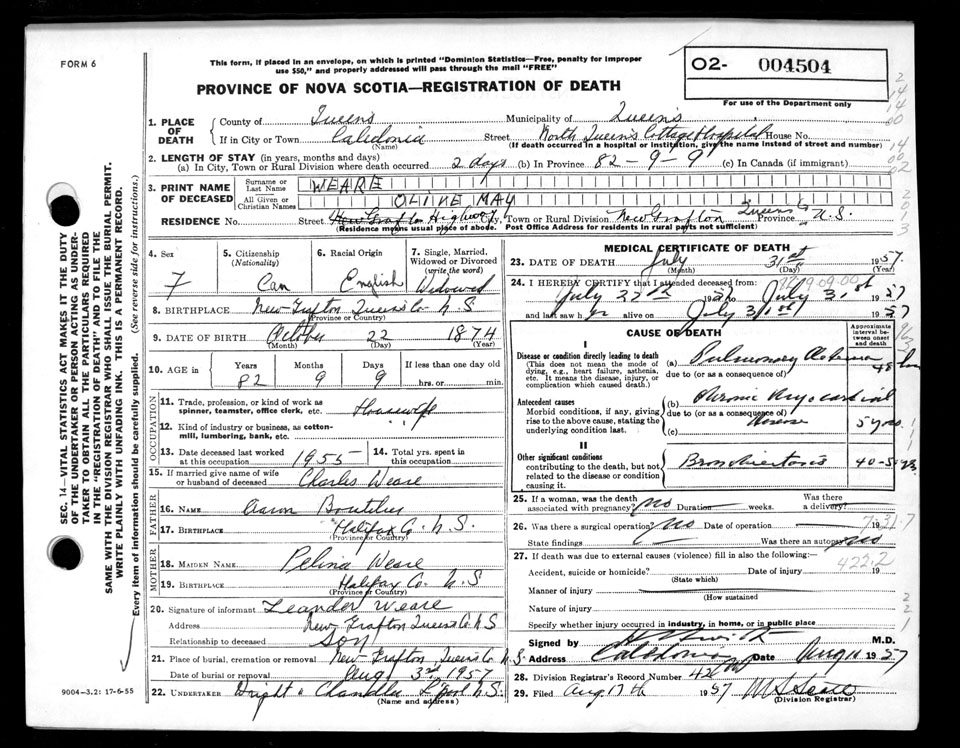 FORM 6
This form, if placed in an envelope, on which is printed "Dominion Statistics—Free, penalty for improper
use $50," and properly addressed will pass through the mail "FREE"
O2- 004504
For use of the Department only
PROVINCE OF NOVA SCOTIA—REGISTRATION OF DEATH
1. PLACE OF DEATH
County of Queens Municipality of Queens
If in City or Town Caledonia Street North Queens Cottage Hospital House No.
(Name) (If death occurred in a hospital or institution, give the name instead of street and number)
2. LENGTH OF STAY (in years, months and days)
(a) In City, Town or Rural Division where death occurred 2 days (b) In Province 82-9-9 (c) In Canada (if immigrant)
3. PRINT NAME OF DECEASED
Surname or Last Name WEARE
All Given or Christian Names OLIVE MAY
RESIDENCE No. Street New Grafton Highway City, Town or Rural Division New Grafton Queens Province N.S.
(Residence means usual place of abode. Post Office Address for residents in rural parts not sufficient)
4. Sex F
5. Citizenship (Nationality) Can
6. Racial Origin English
7. Single, Married, Widowed or Divorced (write the word) Widowed
8. BIRTHPLACE New Grafton Queens Co N.S.
(Province or Country)
9. DATE OF BIRTH October 22 1874
(Month) (Day) (Year)
10. AGE in Years Months Days If less than one day old
82 9 9 hrs. or min.
OCCUPATION
11. Trade, profession, or kind of work as
spinner, teamster, office clerk, etc. Housewife
12. Kind of industry or business, as cotton-
mill, lumbering, bank, etc.
13. Date deceased last worked
at this occupation 1955
14. Total yrs. spent in
this occupation
15. If married give name of wife
or husband of deceased Charles Weare
FATHER
16. NAME Aaron Boutilier
17. BIRTHPLACE Halifax Co. N.S.
(Province or Country)
MOTHER
18. MAIDEN NAME Pelina Weare
19. BIRTHPLACE Halifax Co. N.S
(Province or Country)
20. Signature of informant Leander Weare
Address New Grafton Queens Co. N.S
Relationship to deceased Son
21. Place of burial, cremation or removal New Grafton Queens Co N.S
Date of burial or removal Aug 3rd 1957
22. UNDERTAKER Wright & Chandler L'pool N.S.
(Name and address)
MEDICAL CERTIFICATE OF DEATH
23. DATE OF DEATH July 31st 1957
(Month) (Day) (Year)
24. I HEREBY CERTIFY that I attended deceased from:
July 1957 to July 31st 1957
and last saw her alive on July 31st 1957
CAUSE OF DEATH
Approximate interval between onset and death
I
Disease or condition directly leading to death
(This does not mean the mode of dying, e.g., heart failure, asthenia, etc. It means the disease, injury, or complication which caused death.)
(a) Pulmonary Oedema 48 hrs
due to (or as a consequence of)
Antecedent causes
Morbid conditions, if any, giving rise to the above cause, stating the underlying condition last.
(b) Chronic Myocardial
due to (or as a consequence of) disease 5 yrs.
(c)
II
Other significant conditions
contributing to the death, but not related to the disease or condition causing it.
Bronchiectasis 40-50 yrs
25. If a woman, was the death
associated with pregnancy? no Duration weeks. Was there a delivery?
26. Was there a surgical operation? no Date of operation 19
State findings Was there an autopsy? no
27. If death was due to external causes (violence) fill in also the following:—
422.2
Accident, suicide or homicide? Date of injury 19
(State which)
Manner of injury
(How sustained
Nature of injury
Specify whether injury occurred in industry, in home, or in public place
Signed by M.D.
Address Caledonia Date Aug 10 1957
28. Division Registrar's Record Number 42
29. Filed Aug 17th 1957
(Division Registrar)
SEC. 14—VITAL STATISTICS ACT MAKES IT THE DUTY
OF THE UNDERTAKER OR PERSON ACTING AS UNDER-
TAKER TO OBTAIN ALL THE PARTICULARS REQUIRED
IN THE "REGISTRATION OF DEATH" AND TO FILE THE
SAME WITH THE DIVISION REGISTRAR WHO SHALL ISSUE THE BURIAL PERMIT.
WRITE PLAINLY WITH UNFADING INK. THIS IS A PERMANENT RECORD.
Every item of information should be carefully supplied. (See reverse side for instructions.)
9004—3.2: 17-6-55